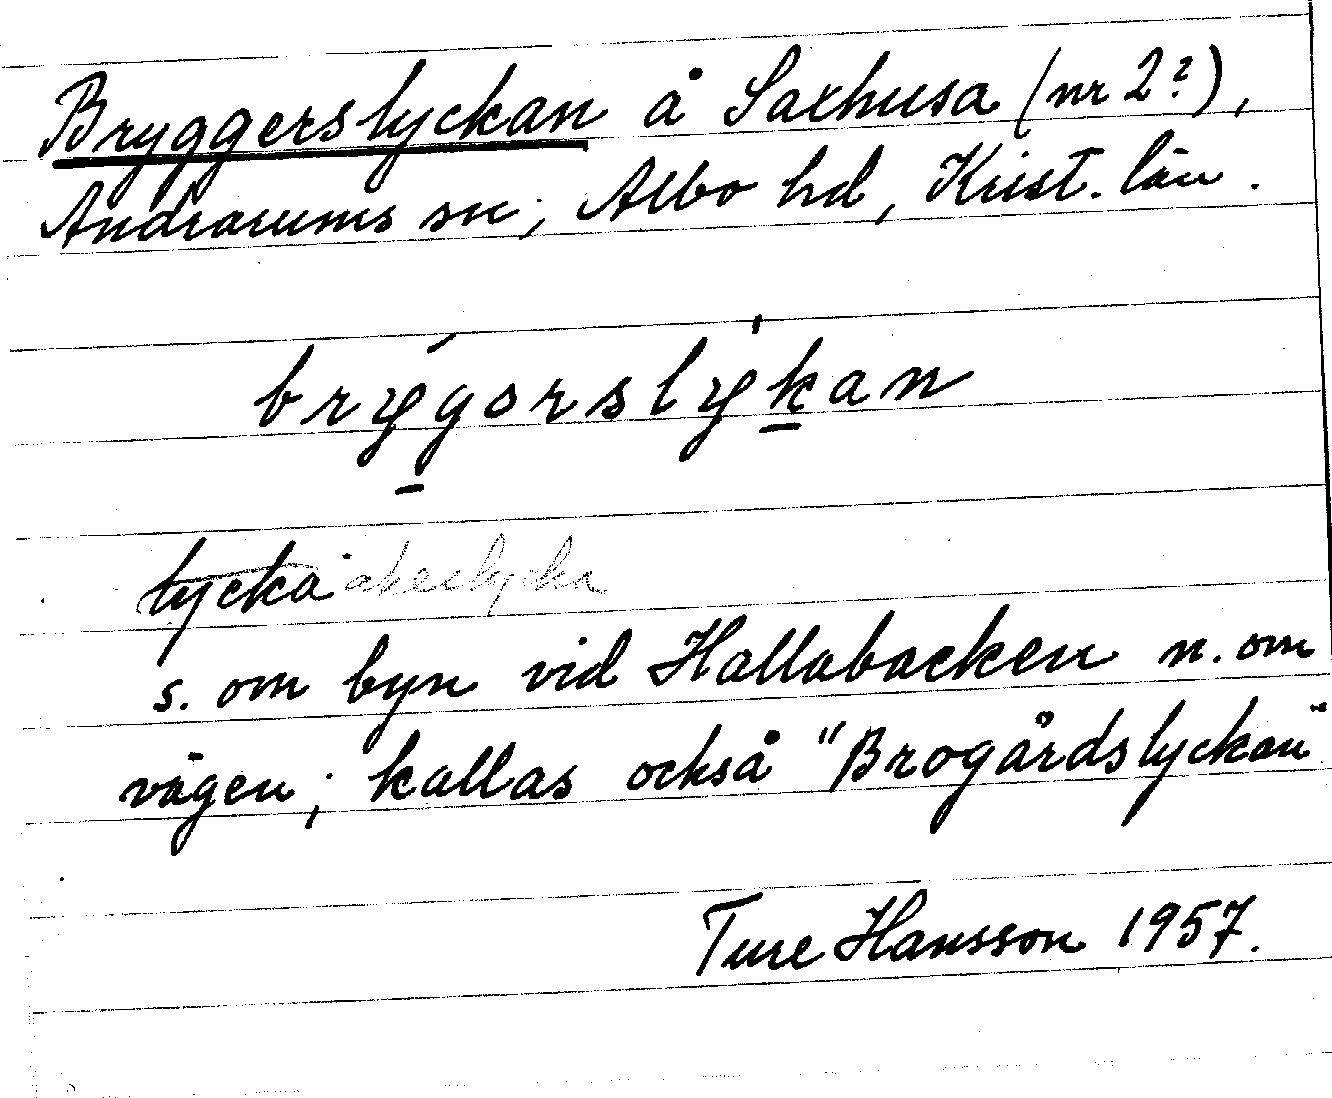 Bryggerslyckan å Saxhusa (nr 2?),
Andrarums sn, Albo hd, Krist. län.
brýgǝrslỳkan
lycka åkerlycka
s. om byn vid Hallabacken n. om
vägen; kallas också "Brogårdslyckan"
Ture Hansson 1957.